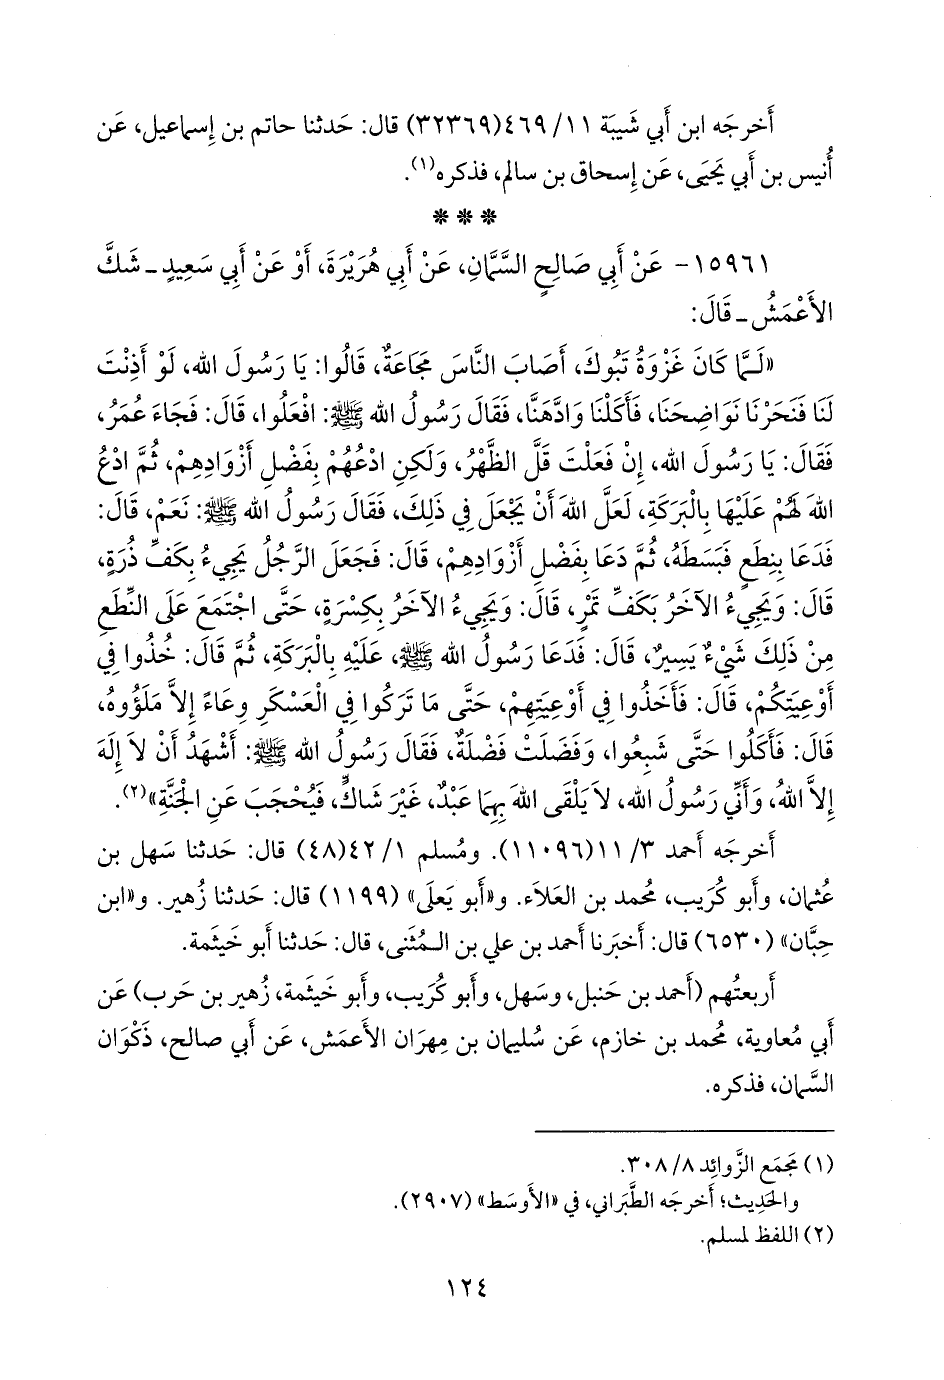 أَخرجَه ابن أَبي شَيبَة ١١/ ٤٦٩(٣٢٣٦٩) قال: حَدثنا حاتم بن إِسماعيل، عَن
أُنيس بن أَبي يَحيَى، عَن إِسحاق بن سالم، فذكره(١).
***
١٥٩٦١- عَنْ أَبِي صَالِحٍ السَّمَّانِ، عَنْ أَبِي هُرَيْرَةَ، أَوْ عَنْ أَبِي سَعِيدٍ ـ شَكَّ
الأَعْمَشُ ـ قَالَ:
«لَـمَّا كَانَ غَزْوَةُ تَبُوكَ، أَصَابَ النَّاسَ مَجَاعَةٌ، قَالُوا: يَا رَسُولَ الله، لَوْ أَذِنْتَ
لَنَا فَنَحَرْنَا نَوَاضِحَنَا، فَأَكَلْنَا وَادَّهَنَّا، فَقَالَ رَسُولُ الله ﷺ: افْعَلُوا، قَالَ: فَجَاءَ عُمَرُ،
فَقَالَ: يَا رَسُولَ الله، إِنْ فَعَلْتَ قَلَّ الظَّهْرُ، وَلَكِنِ ادْعُهُمْ بِفَضْلِ أَزْوَادِهِمْ، ثُمَّ ادْعُ
اللهَ لَهُمْ عَلَيْهَا بِالْبَرَكَةِ، لَعَلَّ اللهَ أَنْ يَجْعَلَ فِي ذَلِكَ، فَقَالَ رَسُولُ الله ﷺ: نَعَمْ، قَالَ:
فَدَعَا بِنِطَعٍ فَبَسَطَهُ، ثُمَّ دَعَا بِفَضْلِ أَزْوَادِهِمْ، قَالَ: فَجَعَلَ الرَّجُلُ يَجِيءُ بِكَفِّ ذُرَةٍ،
قَالَ: وَيَجِيءُ الآخَرُ بَكَفِّ تَمْرٍ، قَالَ: وَيَجِيءُ الآخَرُ بِكِسْرَةٍ، حَتَّى اجْتَمَعَ عَلَى النِّطَعِ
مِنْ ذَلِكَ شَيْءٌ يَسِيرٌ، قَالَ: فَدَعَا رَسُولُ الله ﷺ، عَلَيْهِ بِالْبَرَكَةِ، ثُمَّ قَالَ: خُذُوا فِي
أَوْعِيَتِكُمْ، قَالَ: فَأَخَذُوا فِي أَوْعِيَتِهِمْ، حَتَّى مَا تَرَكُوا فِي الْعَسْكَرِ وِعَاءً إِلاَّ مَلَؤُوهُ،
قَالَ: فَأَكَلُوا حَتَّى شَبِعُوا، وَفَضَلَتْ فَضْلَةٌ، فَقَالَ رَسُولُ الله ﷺ: أَشْهَدُ أَنْ لاَ إِلَهَ
إِلاَّ اللهُ، وَأَنِّي رَسُولُ الله، لاَ يَلْقَى اللهَ بِهِمَا عَبْدٌ، غَيْرَ شَاكٍّ، فَيُحْجَبَ عَنِ الْجَنَّةِ»(٢).
أَخرجَه أَحمد ٣/ ١١(١١٠٩٦). ومُسلم ١/ ٤٢(٤٨) قال: حَدثنا سَهل بن
عُثمان، وأَبو كُرَيب، مُحمد بن العَلاَء. و«أَبو يَعلَى» (١١٩٩) قال: حَدثنا زُهير. و«ابن
حِبَّان» (٦٥٣٠) قال: أَخبَرنا أَحمد بن علي بن الـمُثَنى، قال: حَدثنا أَبو خَيثمة.
أَربعتُهم (أَحمد بن حَنبل، وسَهل، وأَبو كُرَيب، وأَبو خَيثمة، زُهير بن حَرب) عَن
أَبي مُعاوية، مُحمد بن خازم، عَن سُليمان بن مِهرَان الأَعمَش، عَن أَبي صالح، ذَكْوَان
السَّمان، فذكره.
(١) مَجمَع الزَّوائِد ٨/ ٣٠٨.
والحَدِيث؛ أَخرجَه الطَّبَراني، في «الأَوسَط» (٢٩٠٧).
(٢) اللفظ لمسلم.
١٢٤